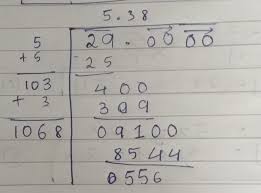 5.38
5 29.00 00
+5 -25
103 400
+ 3 309
1068 09100
8544
0556